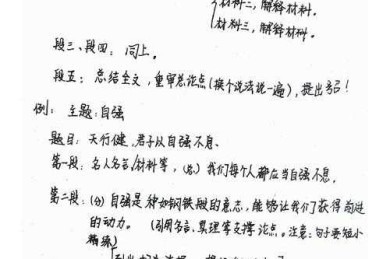 材料二，解释材料。
材料三，解释材料。
段三、段四：同上。
段五：总结全文，重审总论点(换个说法说一遍)，提出号召！
例：主题：自强
题目：天行健，君子以自强不息。
第一段：名人名言/材料等，(总)我们每个人都应当自强不息。
第二段：(分)自强是种如钢铁般的意志，能够让我们获得前进
的动力。(引用名言、真理等支撑论点。注意：句子要短小
精练)